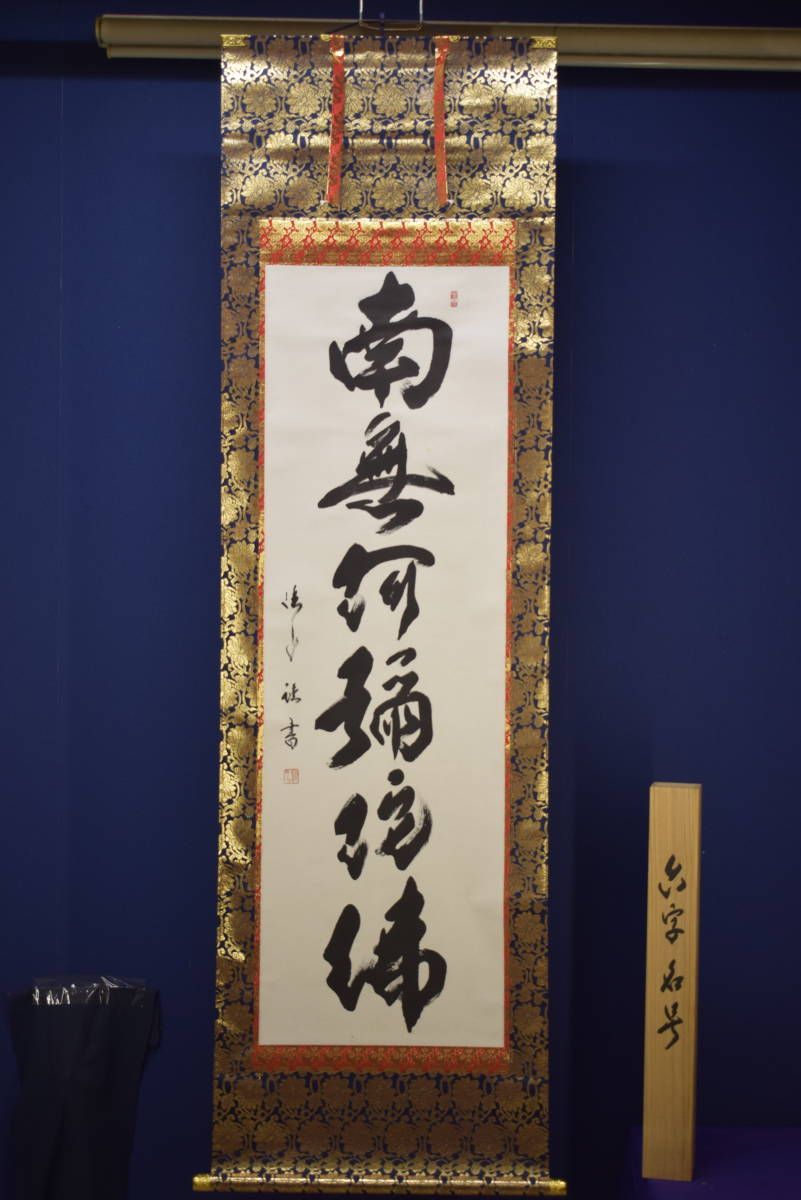 南無阿弥陀佛
謹書
六字名号